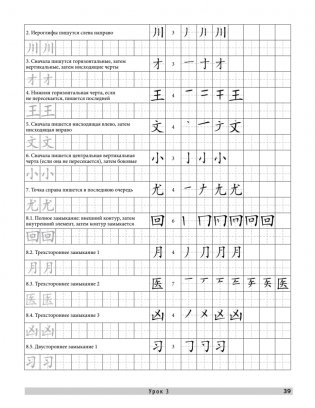 2. Иероглифы пишутся слева направо
川 3 丿 川 川
川 川
3. Сначала пишутся горизонтальные, затем
вертикальные, затем нисходящие черты
才 3 一 十 才
才 才
4. Нижняя горизонтальная черта, если
не пересекается, пишется последней
王 4 一 二 干 王
王 王
5. Сначала пишется нисходящая влево, затем
нисходящая вправо
文 4 丶 亠 ナ 文
文 文
6. Сначала пишется центральная вертикальная
черта (если она не пересекается), затем боковые
小 3 亅 小 小
小 小
7. Точка справа пишется в последнюю очередь
尤 4 一 ナ 九 尤
尤 尤
8.1. Полное замыкание: внешний контур, затем
внутренний элемент, затем контур замыкается
回 6 丨 冂 冋 回 回 回
回 回
8.2. Трехстороннее замыкание 1
月 4 丿 月 月 月
月 月
8.3. Трехстороннее замыкание 2
医 7 一 匚 匚 匚 三 医 医
医 医
8.4. Трехстороннее замыкание 3
凶 4 丿 㐅 凶 凶
凶 凶
8.5. Двустороннее замыкание 1
习 3 𠃌 习 习
习 习
Урок 3 39